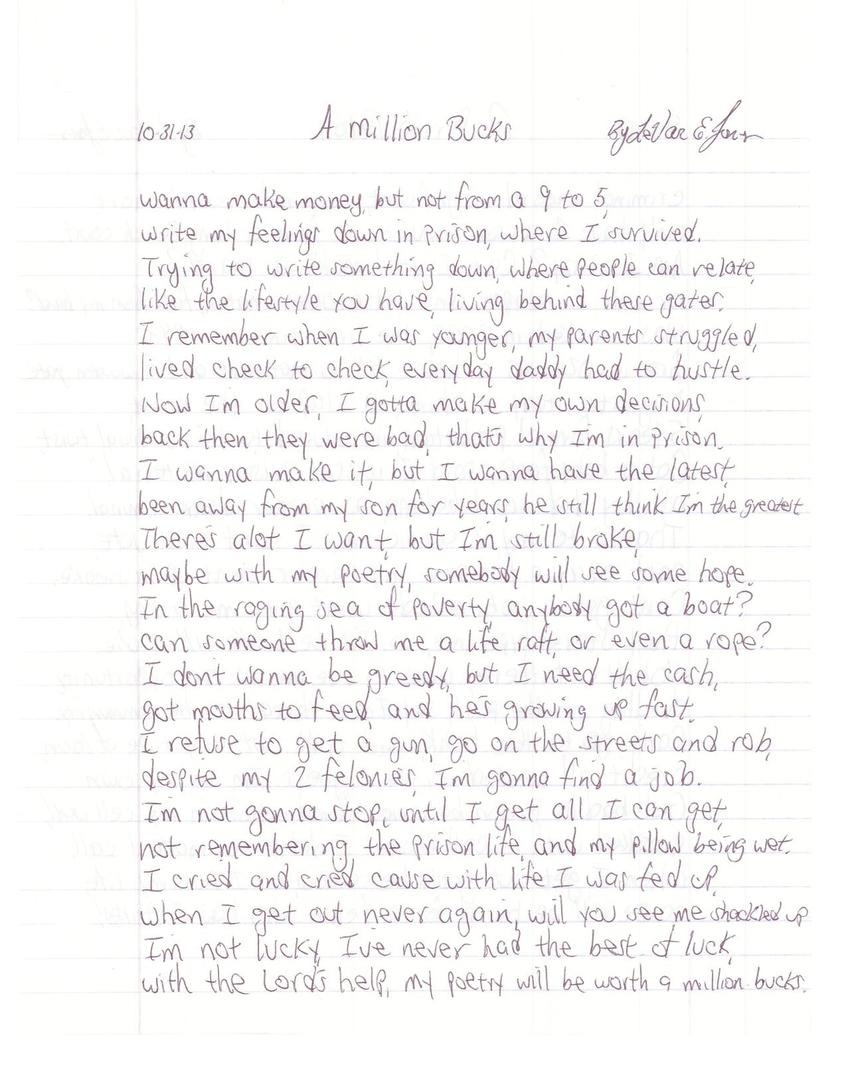 10-31-13 A million Bucks By LeVar E Jones
wanna make money, but not from a 9 to 5,
write my feelings down in prison, where I survived.
Trying to write something down, where people can relate,
like the lifestyle you have, living behind these gates.
I remember when I was younger, my parents struggled,
lived check to check, everyday daddy had to hustle.
Now Im older, I gotta make my own decisions,
back then they were bad, thats why Im in prison.
I wanna make it, but I wanna have the latest,
been away from my son for years, he still think Im the greatest.
There's alot I want, but Im still broke,
maybe with my poetry, somebody will see some hope.
In the raging sea of poverty, anybody got a boat?
can someone throw me a life raft, or even a rope?
I dont wanna be greedy, but I need the cash,
got mouths to feed, and he's growing up fast.
I refuse to get a gun, go on the streets and rob,
despite my 2 felonies, Im gonna find a job.
Im not gonna stop, until I get all I can get,
not remembering the prison life, and my pillow being wet.
I cried and cried cause with life I was fed up,
when I get out never again, will you see me shackled up
Im not lucky, I've never had the best of luck,
with the Lord's help, my poetry will be worth a million bucks.